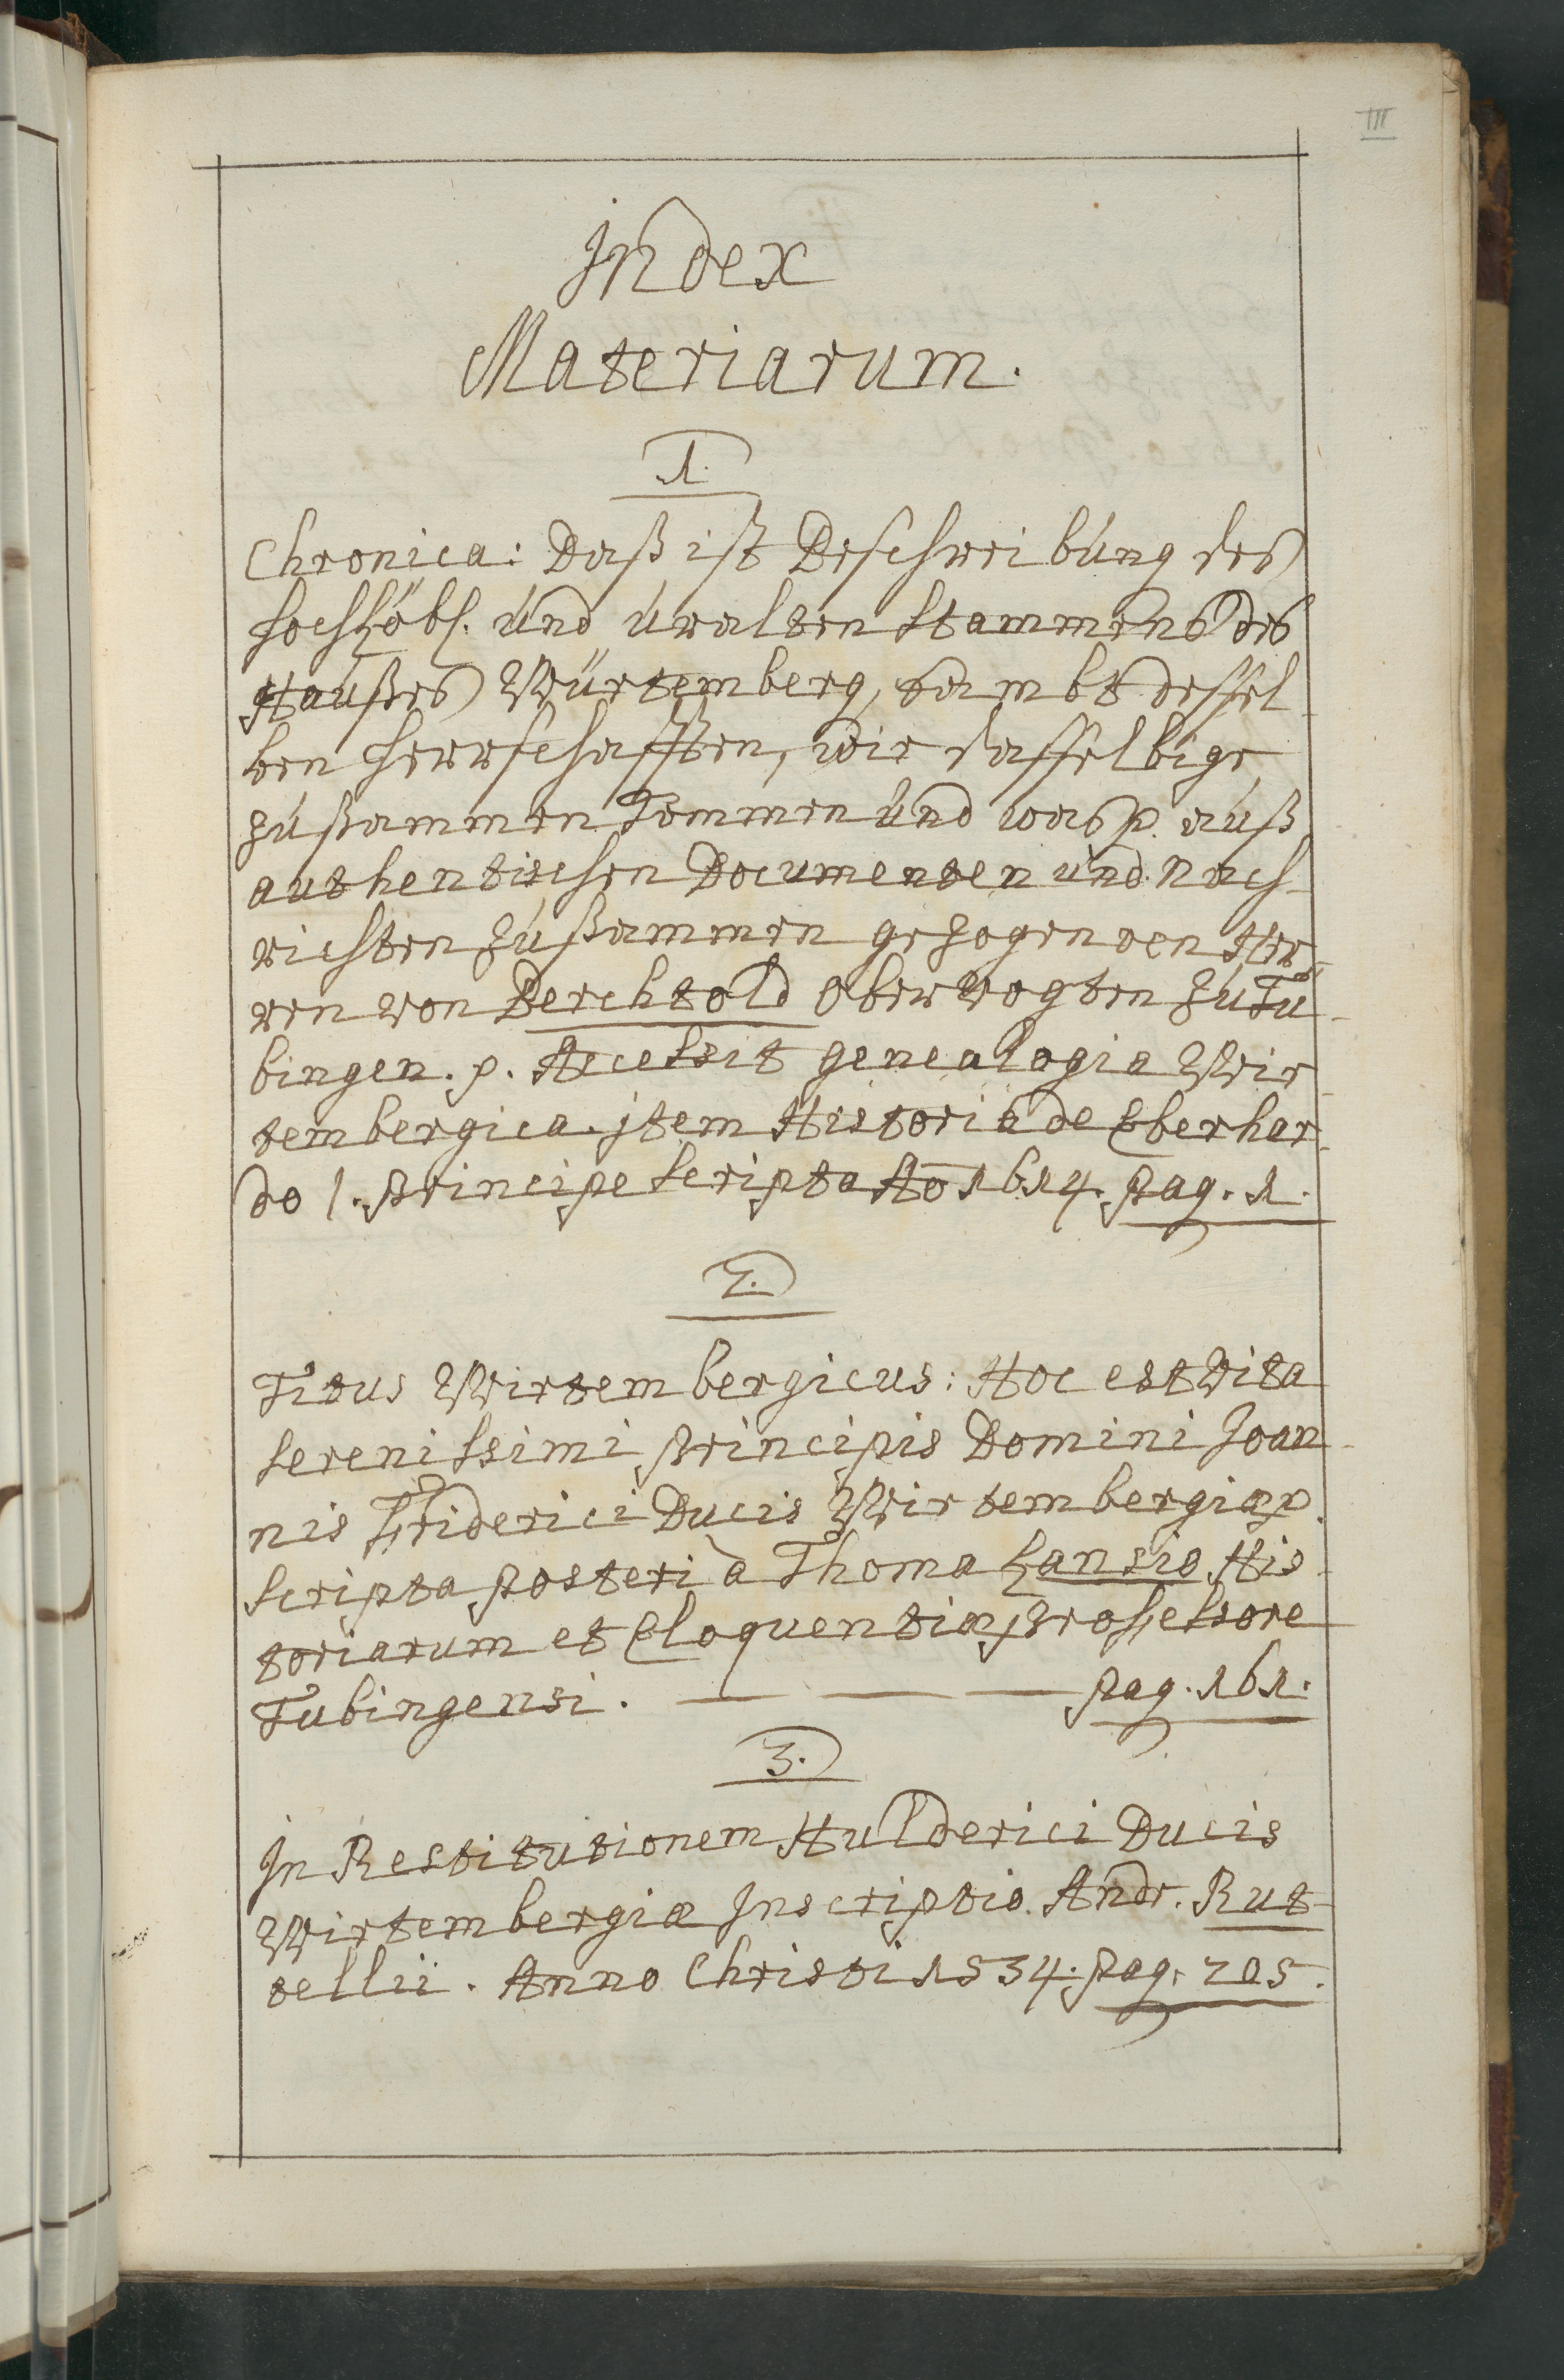 III
Index
Materiarum.
1.
Chronica: Daß ist Beschreibung des
hochlöbl. und uralten Stammens des
Haußes Würtemberg, sambt dessel-
ben Herrschafften, wie dasselbige
zußammen kommen und was p. auß
authentischen Documenten und Nach-
richten zußammen gezogen von Her-
ren von Berchtold Obervogten zu Tü-
bingen. p. Accessit genealogia Wir-
tembergica. jtem Historia de Eberhar-
do 1. Principe scripta Ao 1614. pag. 1.
2.
Titus Wirtembergicus: Hoc est Vita
serenissimi Principis Domini Joan-
nis Friderici Ducis Wirtembergiæ p.
scripta posteri à Thoma Lansio His-
toriarum et Eloquentiæ Professore
Tubingensi. — — — pag. 161.
3.
In Restitutionem Hulderici Ducis
Wirtembergiæ Inscriptio. Andr. Rut-
tellii. Anno Christi 1534. pag. 205.